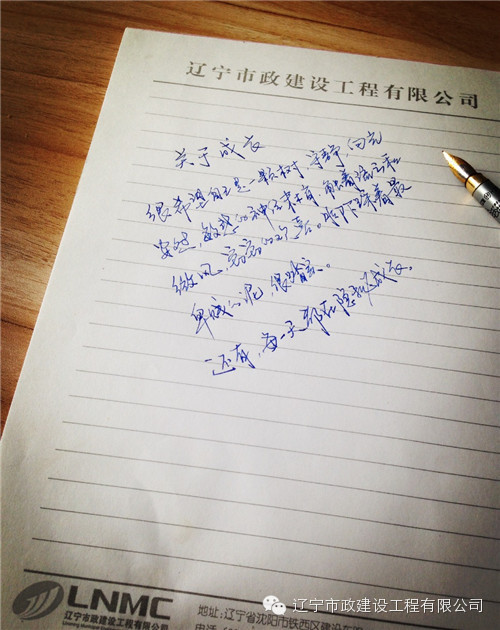 辽宁市政建设工程有限公司
关于成长
很希望自己是一颗树，守静 向光
安然，敏感的神经末梢，触着流云和
微风，窃窃的欢喜。脚下踩着最
卑贱的泥，很踏实。
还有，每一天都在隐秘成长。
LNMC
辽宁市政建设工程有限公司
地址:辽宁省沈阳市铁西区建设东
电话
辽宁市政建设工程有限公司